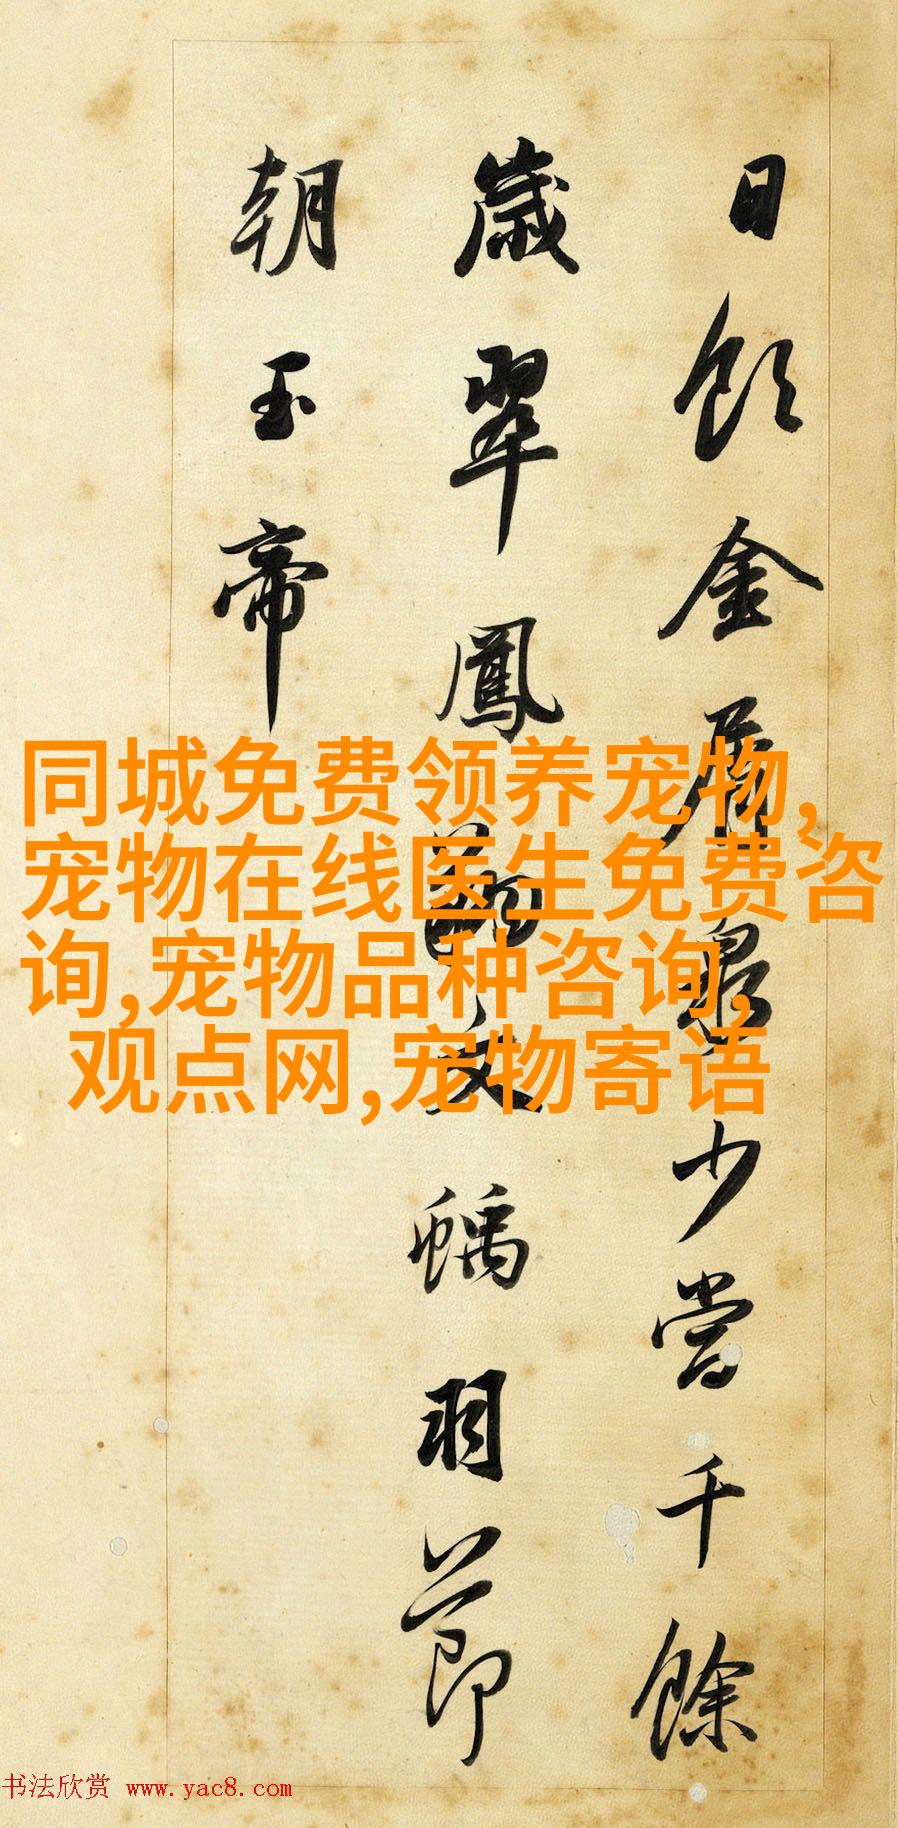 日飲金屑泉少當千餘
歲翠鳳文螭羽節
朝玉帝
同城免费领养宠物,
宠物在线医生免费咨
询,宠物品种咨询,
观点网,宠物寄语
书法欣赏 www.yac8.com